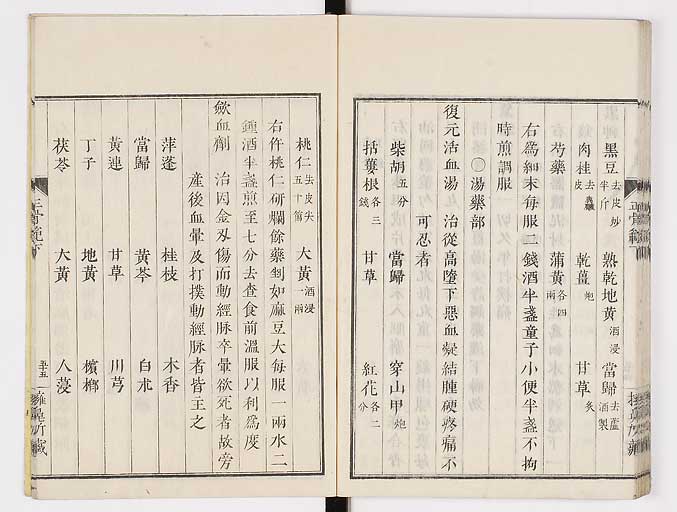 黒豆 去皮炒半斤 熟乾地黄 酒浸 當歸 去蘆酒製
肉桂 去皮 乾薑 炮 甘草 炙
芍藥 蒲黄 各四兩
右爲細末每服二錢酒半盞童子小便半盞不拘
時煎調服
○湯藥部
復元活血湯 治從高墮下惡血凝結腫硬疼痛不
可忍者
柴胡 五分 當歸 穿山甲 炮
括蔞根 各三錢 甘草 紅花 各二分
桃仁 去皮尖五十箇 大黄 酒浸一兩
右件桃仁研爛餘藥剉如麻豆大每服一兩水二
鍾酒半盞煎至七分去査食前溫服以利爲度
歛血劑 治因金刄傷而動經脉卒暈欲死者故旁
產後血暈及打撲動經脉者皆主之
萍蓬 桂枝 木香
當歸 黄芩 白朮
黄連 甘草 川芎
丁子 地黄 檳榔
茯苓 大黄 人薓